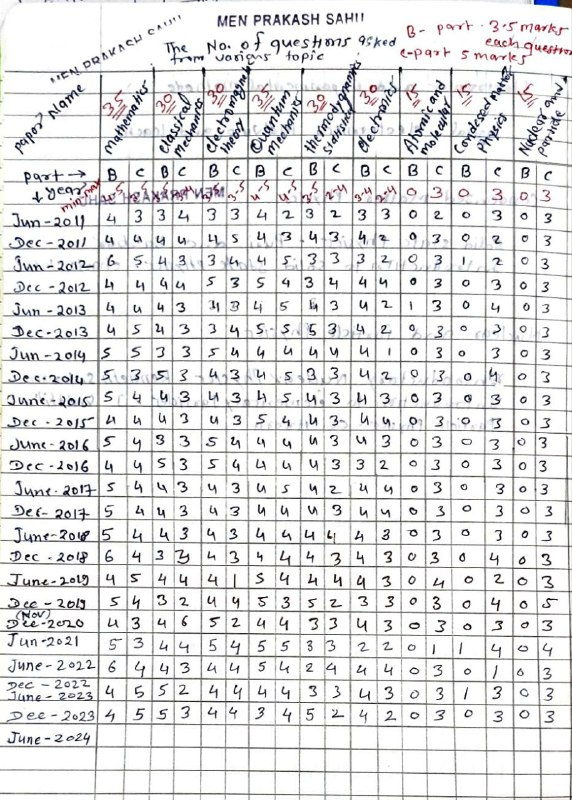 MEN PRAKASH SAHU
MEN PRAKASH SAHU
The No. of questions asked
from various topic
B- part - 3.5 marks
each question
C-part 5 marks
paper Name
35 Mathematics
30 Classical mechanics
30 electromagnetic theory
35 Quantum mechanics
30 thermodynamics statistics
30 electronics
15 Atomic and molecular
15 Condensed matter Physics
15 Nuclear and particle
Part → B C B C B C B C B C B C B C B C B C
↓ year
min-max 4-5 0 3 0 3 0 3
Jun-2011 4 3 3 4 3 3 4 2 3 2 3 3 0 2 0 3 0 3
Dec-2011 4 4 4 4 4 5 4 3 4 3 4 2 0 3 0 2 0 3
Jun-2012 6 5 4 3 3 4 4 5 3 3 3 2 0 3 2 0 3
Dec-2012 4 4 4 4 5 3 5 4 3 4 4 4 0 3 0 3 0 3
Jun-2013 4 4 4 3 4 3 4 5 4 3 4 2 1 3 0 4 0 3
Dec-2013 4 5 4 3 3 4 5 5 5 3 4 2 0 3 0 3 0 3
Jun-2014 5 5 3 3 5 4 4 4 4 4 4 1 0 3 0 3 0 3
Dec-2014 5 3 5 3 4 3 4 5 3 3 4 2 0 3 0 4 0 3
June-2015 5 4 4 3 4 3 4 5 4 3 4 3 0 3 0 3 0 3
Dec-2015 4 4 4 3 4 3 5 4 4 3 4 4 0 3 0 3 0 3
June-2016 5 4 3 3 5 4 4 4 4 3 4 3 0 3 0 3 0 3
Dec-2016 4 4 5 3 5 4 4 4 4 3 3 2 0 3 0 3 0 3
June-2017 5 4 4 3 4 3 4 5 4 2 4 4 0 3 0 3 0 3
Dec-2017 5 4 4 3 4 3 4 4 4 3 4 4 0 3 0 3 0 3
June-2018 5 4 4 3 4 3 4 4 4 4 4 3 0 3 0 3 0 3
Dec-2018 6 4 3 3 4 3 4 4 4 3 4 3 0 3 0 4 0 3
June-2019 4 5 4 4 4 1 5 4 4 4 4 3 0 4 0 2 0 3
Dec-2019 5 4 3 2 4 4 5 3 5 2 3 3 0 3 0 4 0 5
(Nov)
Dec-2020 4 3 4 6 5 2 4 4 3 3 4 3 0 3 0 3 0 3
Jun-2021 5 3 4 4 5 4 5 5 3 3 2 2 0 1 1 4 0 4
June-2022 6 4 4 3 4 4 5 4 2 4 4 4 0 3 0 1 0 3
Dec-2022
June-2023 4 5 5 2 4 4 4 4 3 3 4 3 0 3 1 3 0 3
Dec-2023 4 5 5 3 4 4 3 4 5 2 4 2 0 3 0 3 0 3
June-2024